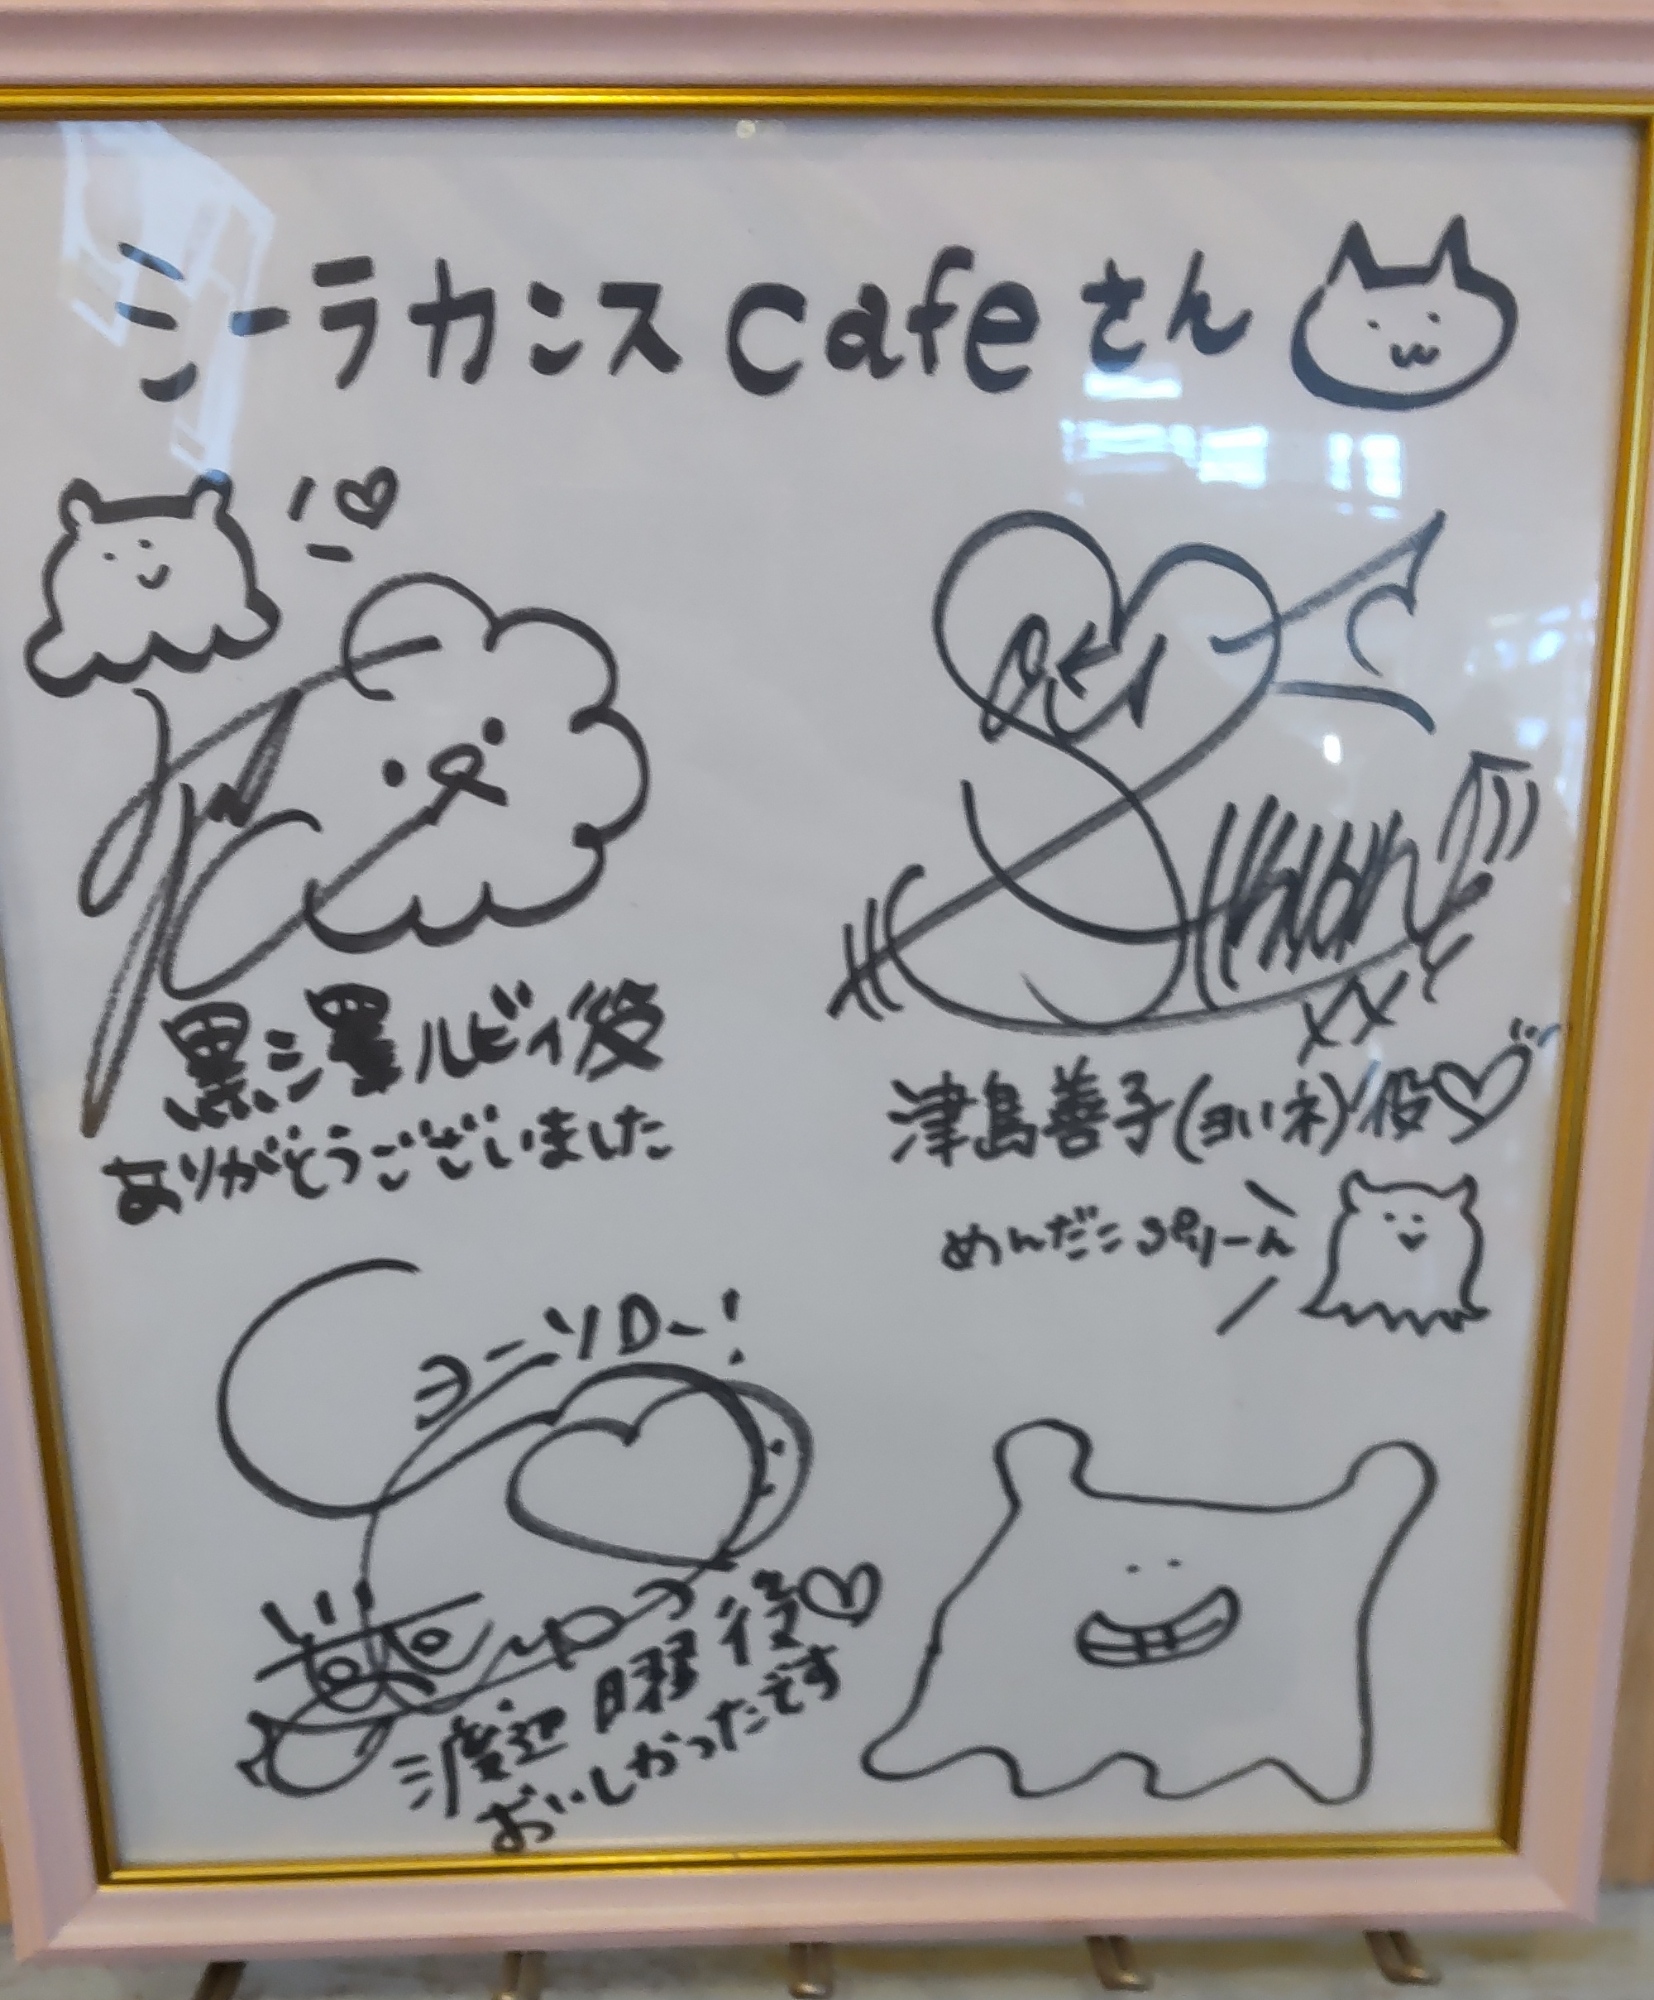 シーラカンスcafeさん
黒澤ルビィ役
ありがとうございました
津島善子(ヨハネ)役
めんだこぷりーん
ヨーソロー!
渡辺曜役
おいしかったです